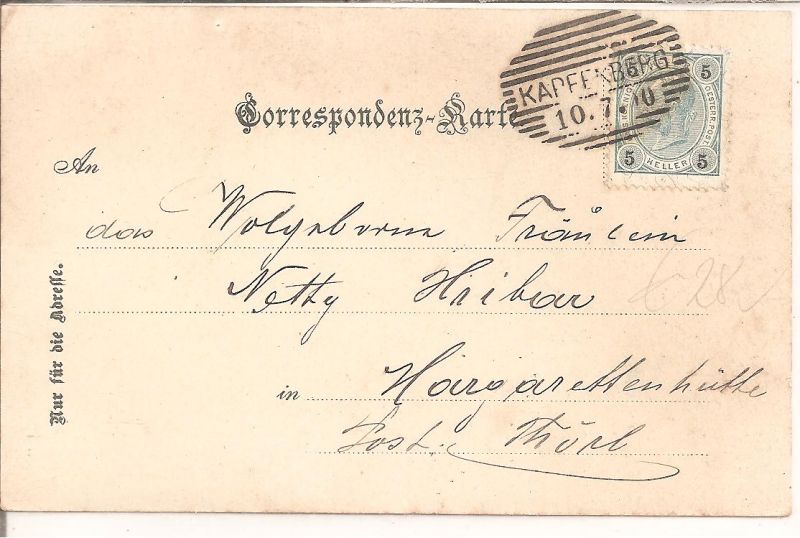 KAPFENBERG
10. 7. 00
5 5
OESTERR. POST.
5 HELLER 5
Correspondenz-Karte
An
das Wolgeborne Fräulein
Netty Hribar
in Margarettenhütte
Post. Thörl
Nur für die Adresse.